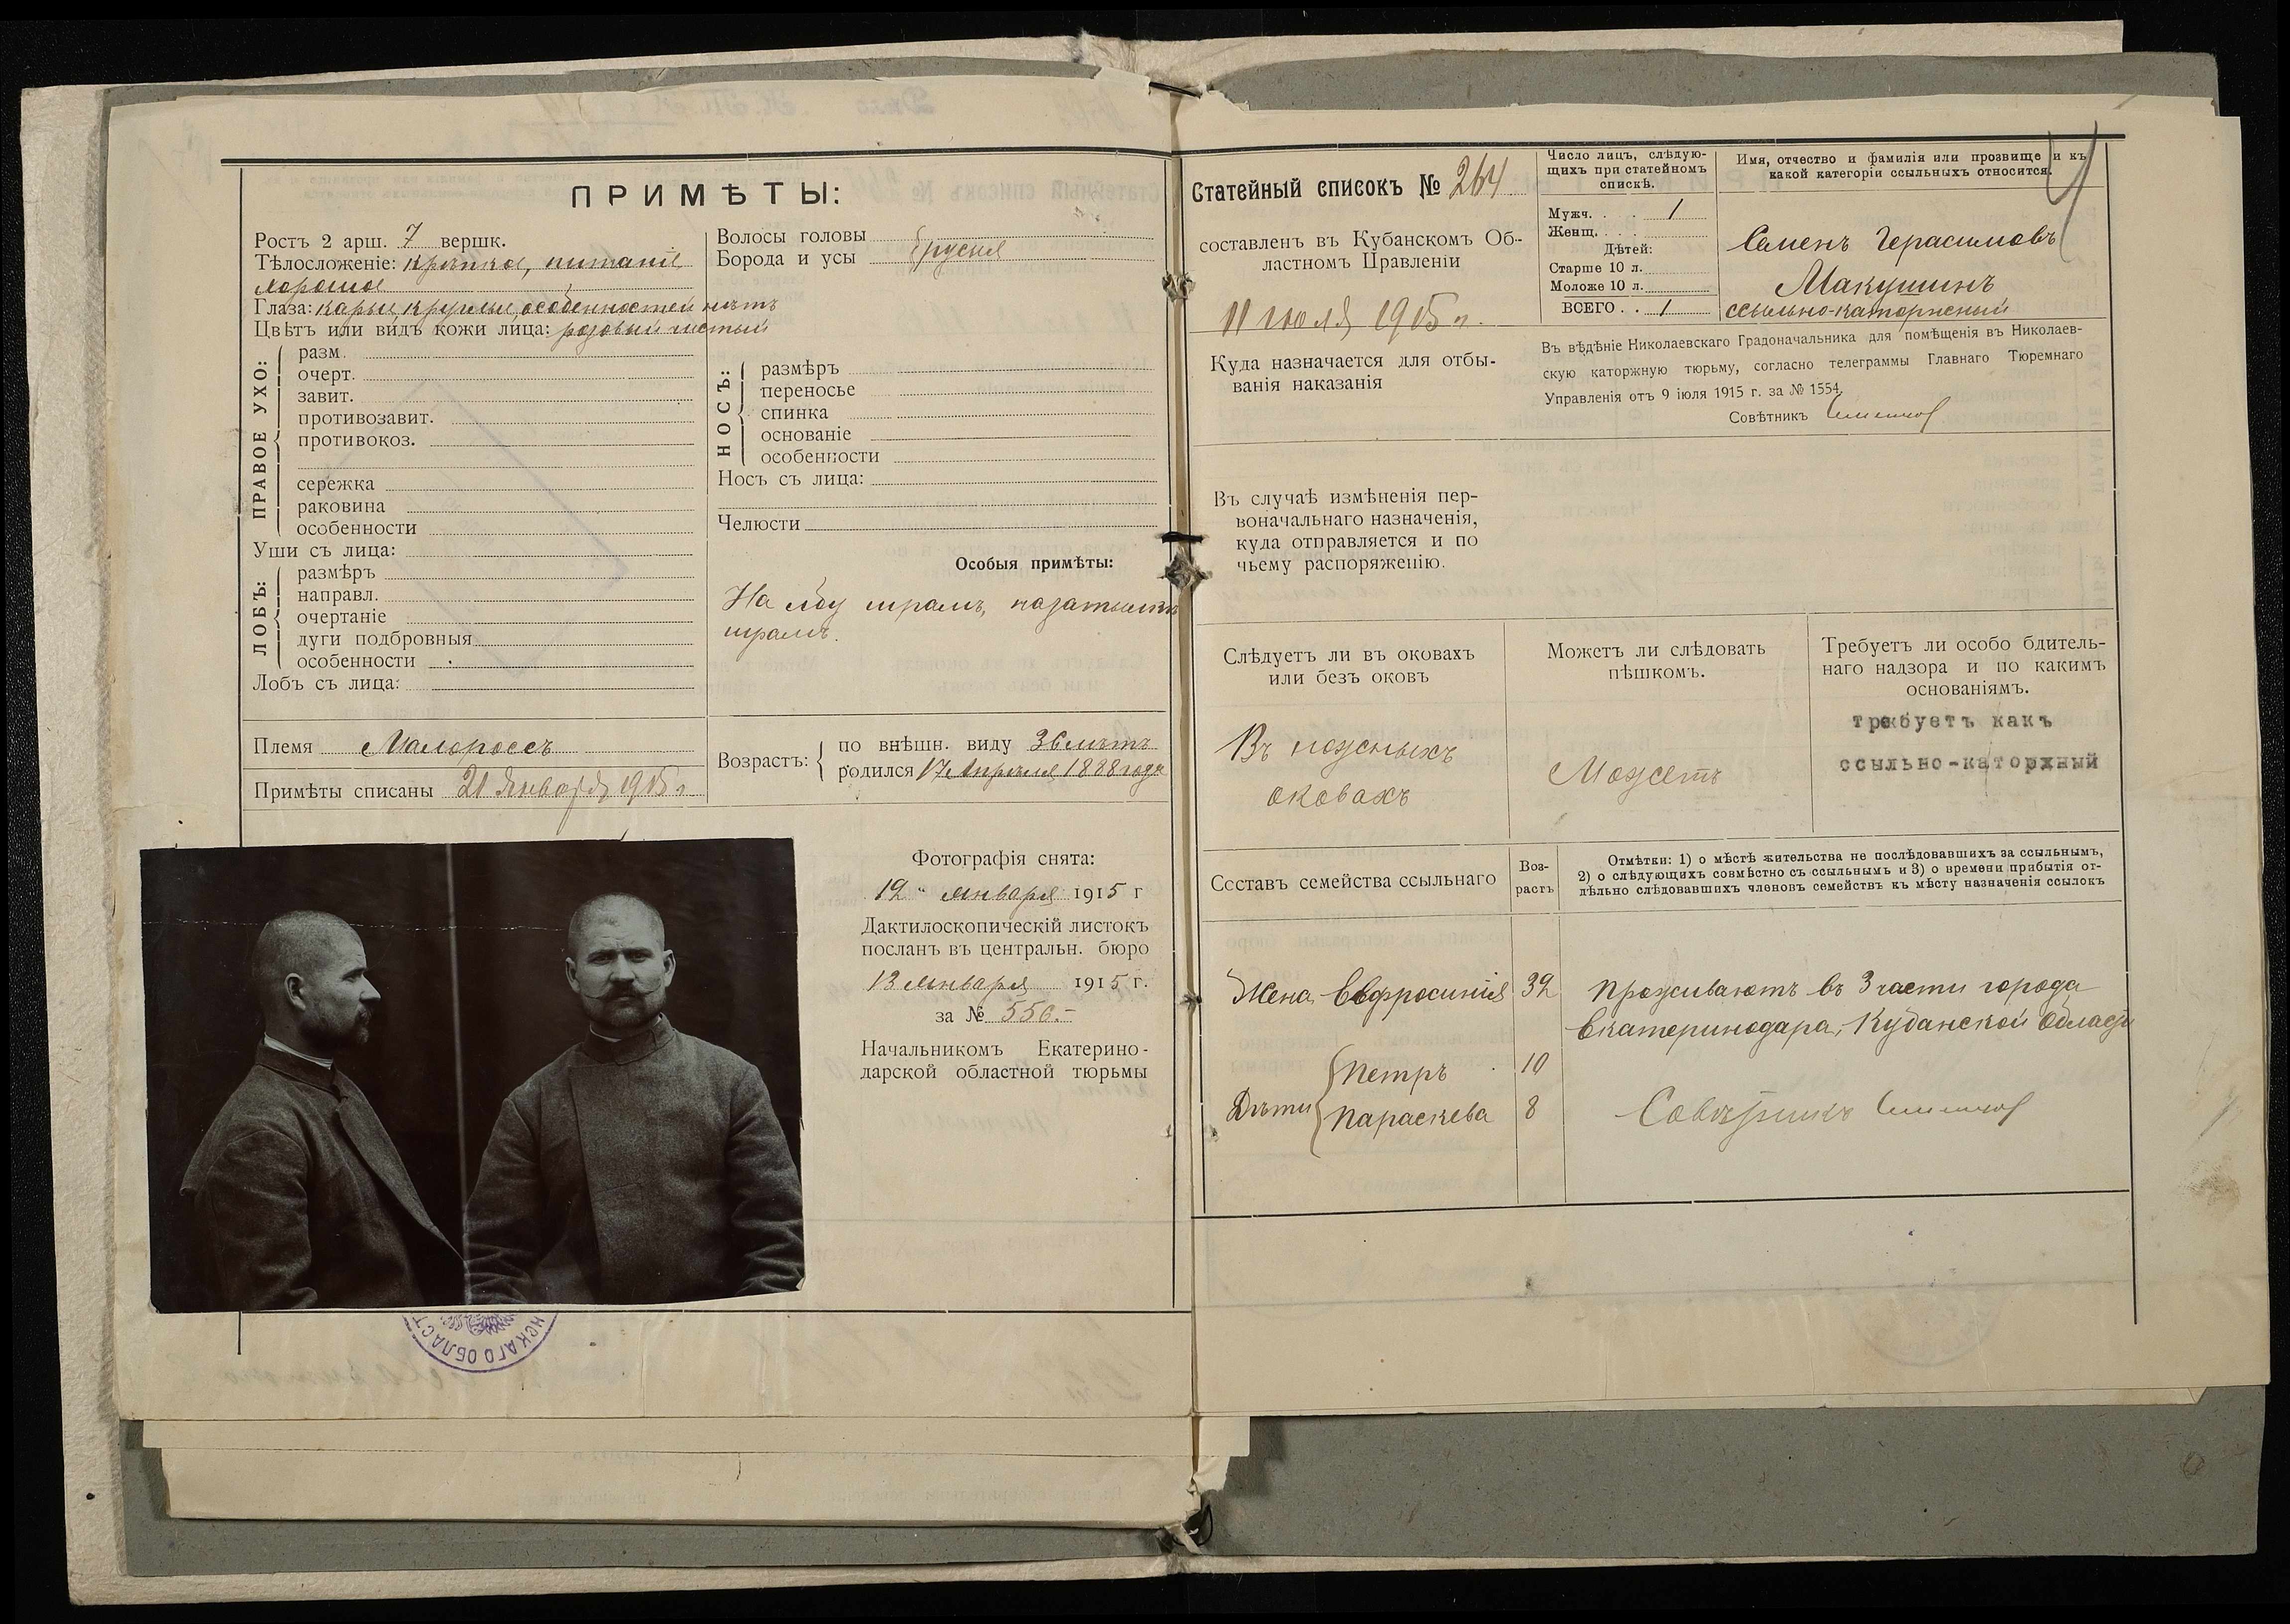 ПРИМѢТЫ:
Ростъ 2 арш. 7 вершк.
Тѣлосложеніе: крѣпкое, питаніе
хорошое
Глаза: каріи, круглые, особенностей нѣтъ
Цвѣтъ или видъ кожи лица: розовый чистый
ПРАВОЕ УХО:
разм.
очерт.
завит.
противозавит.
противокоз.
сережка
раковина
особенности
Уши съ лица:
ЛОБЪ:
размѣръ
направл.
очертаніе
дуги подбровныя
особенности
Лобъ съ лица:
Волосы головы
Борода и усы
русыя
НОСЪ:
размѣръ
переносье
спинка
основаніе
особенности
Носъ съ лица:
Челюсти
Особыя примѣты:
На лбу шрамъ, на затылкѣ
шрамъ.
Племя Малороссъ
Примѣты списаны 21 Января 1915 г.
Возрастъ:
по внѣшн. виду 36 лѣтъ
родился 17 Апрѣля 1888 года
Фотографія снята:
12 " января 1915 г
Дактилоскопическій листокъ
посланъ въ центральн. бюро
13 января 1915 г.
за № 556.-
Начальникомъ Екатерино-
дарской областной тюрьмы
НСКАГО ОБЛАСТ
Статейный списокъ № 264
составленъ въ Кубанскомъ Об-
ластномъ Правленіи
11 июля 1915 г.
Число лицъ, слѣдую-
щихъ при статейномъ
спискѣ.
Мужч. . . 1
Женщ. . . .
Дѣтей:
Старше 10 л.
Моложе 10 л.
ВСЕГО . . 1
Имя, отчество и фамилія или прозвище и къ
какой категоріи ссыльныхъ относится.
4
Семенъ Герасимовъ
Макушинъ
ссыльно-каторжный
Куда назначается для отбы-
ванія наказанія
Въ вѣдѣніе Николаевскаго Градоначальника для помѣщенія въ Николаев-
скую каторжную тюрьму, согласно телеграммы Главнаго Тюремнаго
Управленія отъ 9 іюля 1915 г. за № 1554.
Совѣтникъ
Въ случаѣ измѣненія пер-
воначальнаго назначенія,
куда отправляется и по
чьему распоряженію.
Слѣдуетъ ли въ оковахъ
или безъ оковъ
Въ ножныхъ
оковахъ
Можетъ ли слѣдовать
пѣшкомъ.
Можетъ
Требуетъ ли особо бдитель-
наго надзора и по какимъ
основаніямъ.
требуетъ какъ
ссыльно-каторжный
Составъ семейства ссыльнаго
Воз-
растъ
Отмѣтки: 1) о мѣстѣ жительства не послѣдовавшихъ за ссыльнымъ,
2) о слѣдующихъ совмѣстно съ ссыльнымъ и 3) о времени прибытія от-
дѣльно слѣдовавшихъ членовъ семействъ къ мѣсту назначенія ссылокъ
Жена Евфросинія 32 Проживаютъ въ 3 части города
Екатеринодара, Кубанской Области
Дѣти
Петръ 10
Параскева 8
Совѣтникъ